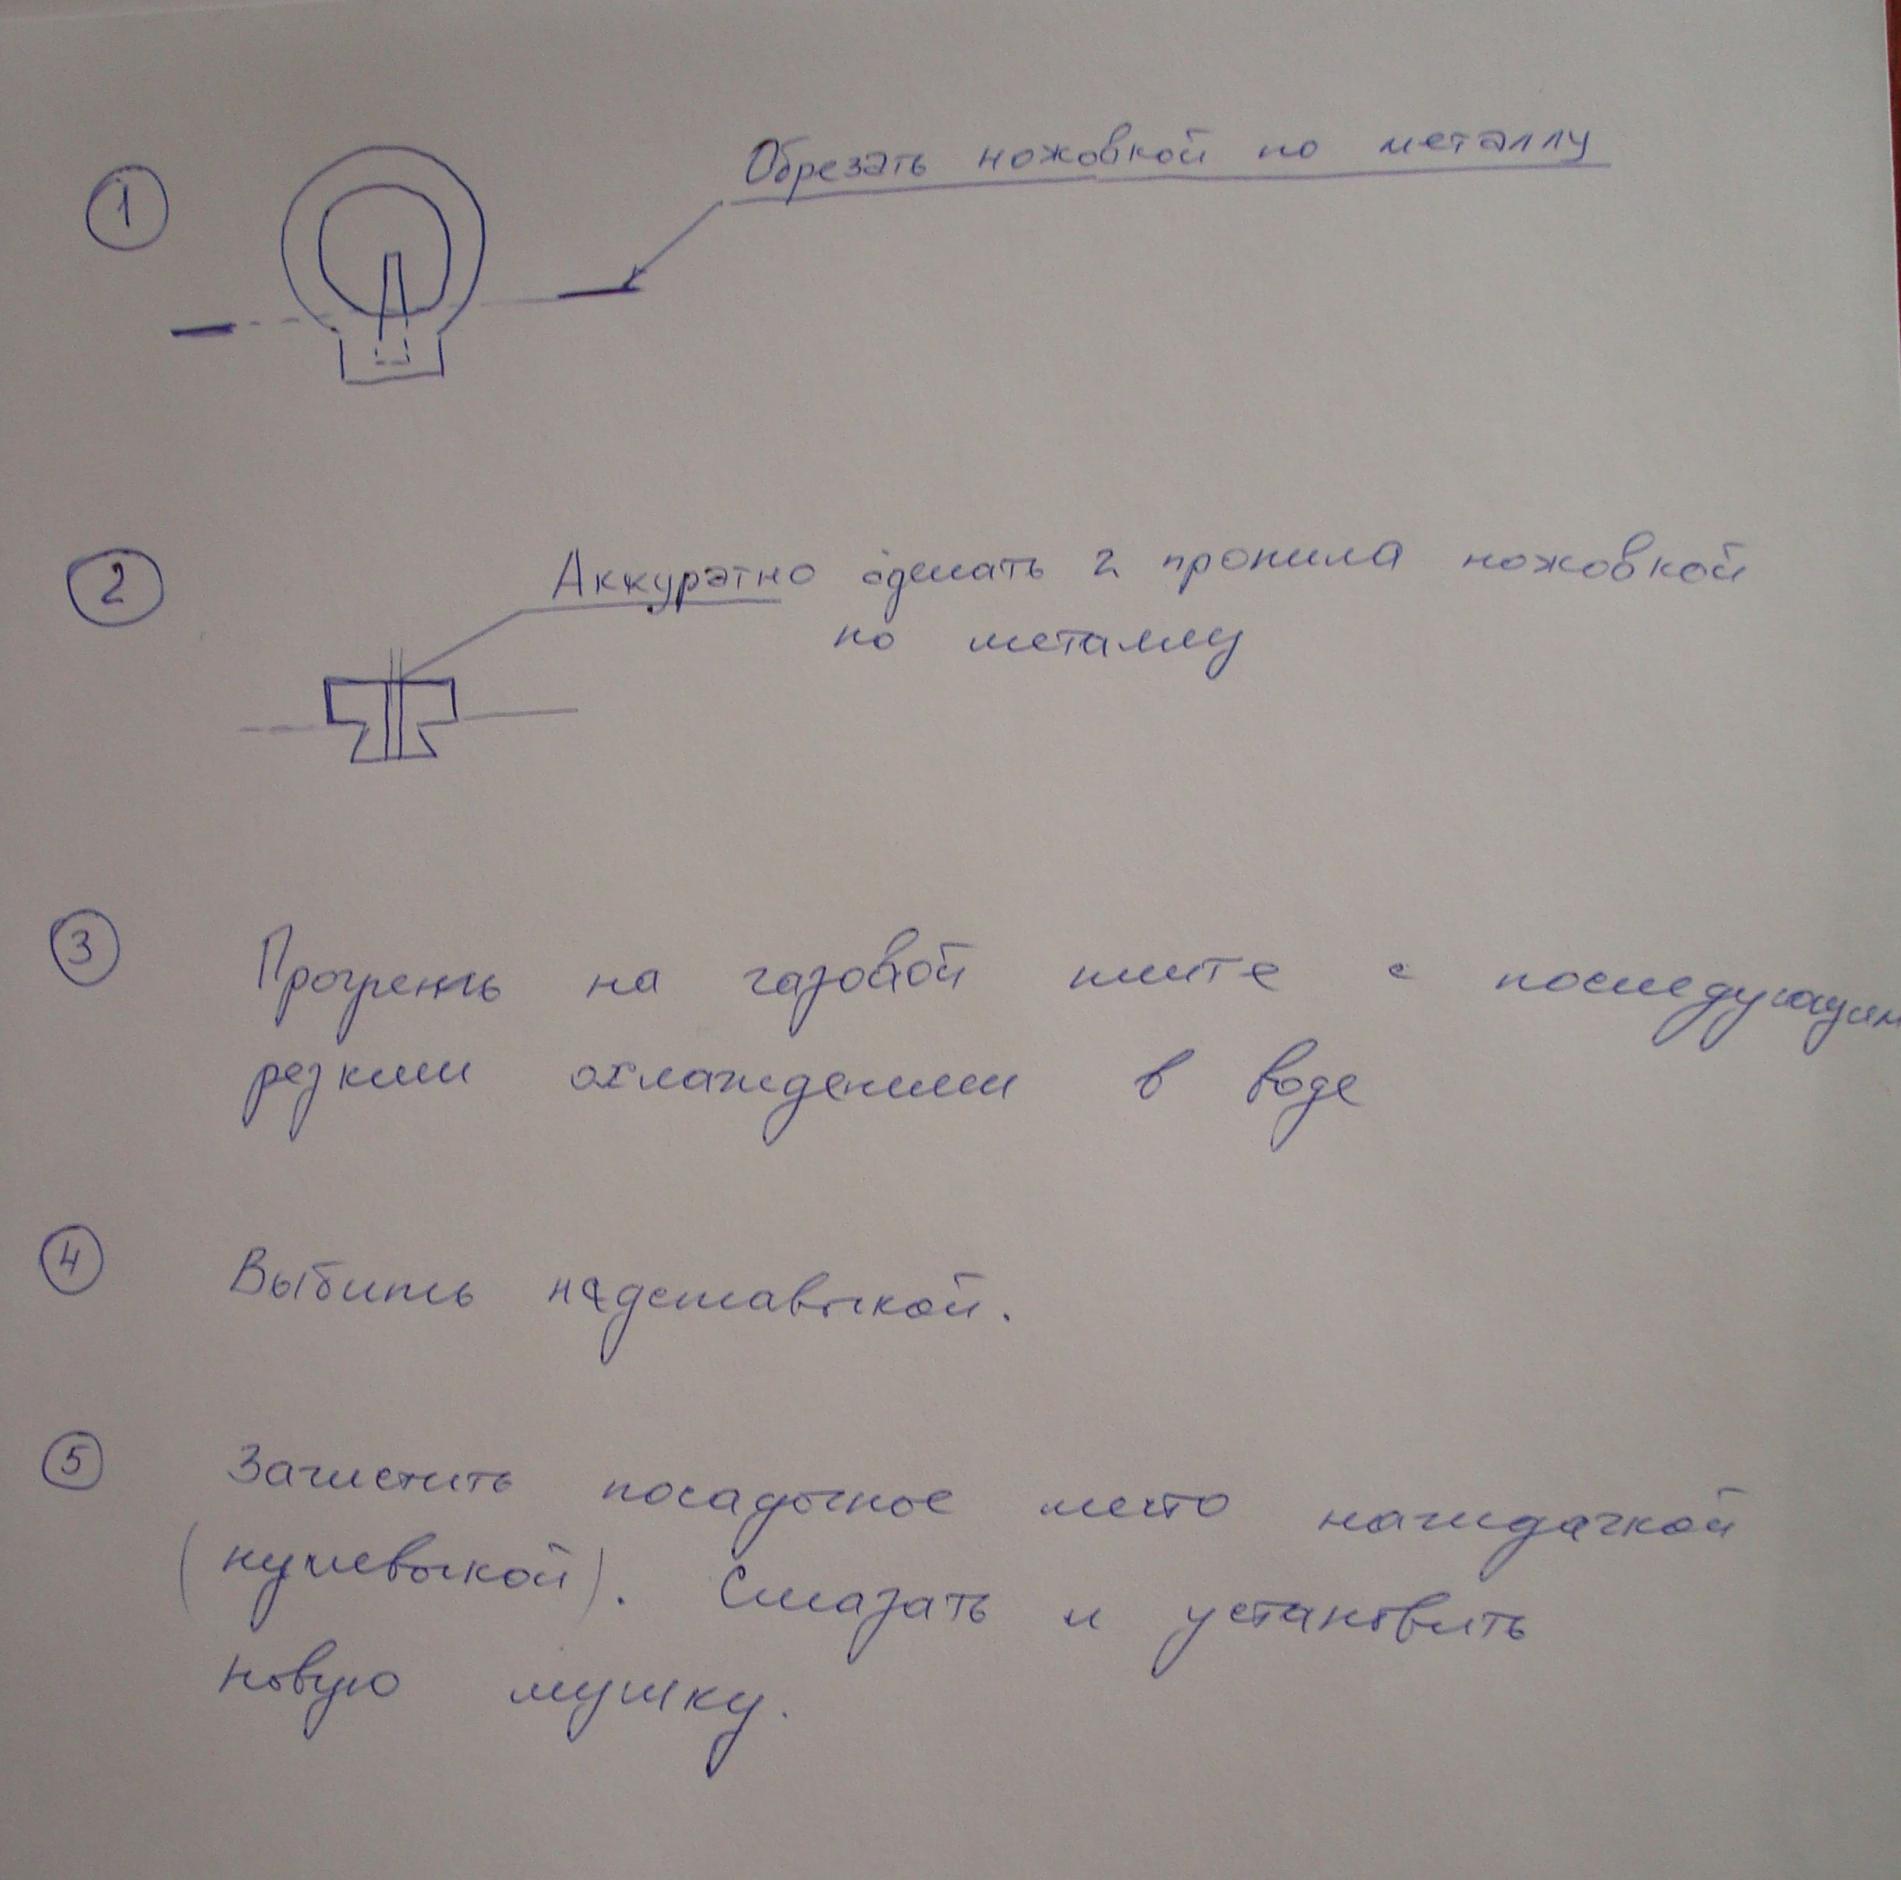 1
Обрезать ножовкой по металлу
2
Аккуратно сделать 2 пропила ножовкой
по металлу
3
Прогреть на газовой плите с последующим
резким охлаждением в воде
4
Выбить надставкой.
5
Зачистить посадочное место наждачкой
(нулевкой). Смазать и установить
новую мушку.